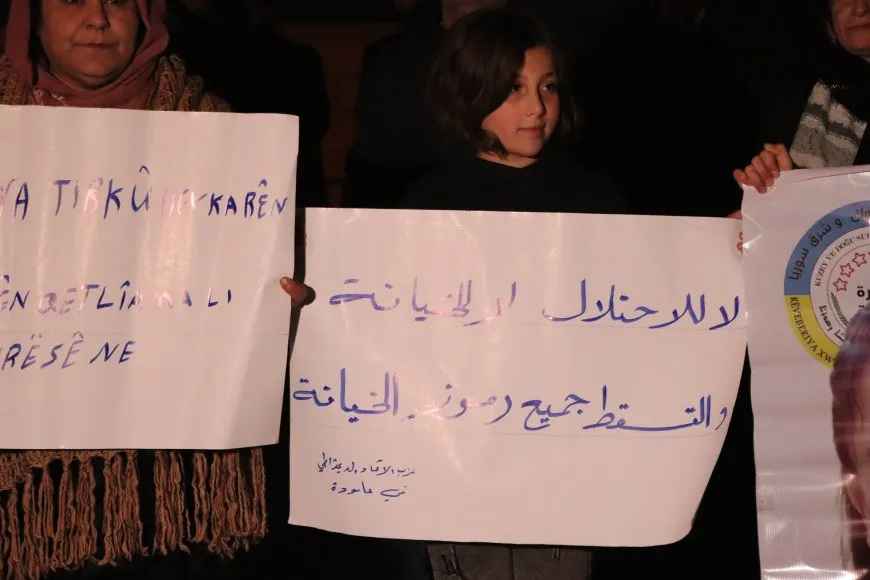 YA TIRKÛ HEVKARÊN
ÊN QETLÎAMA LI
RËSÊ NE
لا للاحتلال لا للخيانة
والتسقط جميع رموز الخيانة
حزب الاتحاد الديمقراطي
في عامودة
وشرق سوريا
KUZEY VE DOĞU SU
RÊVEBERIYA XW